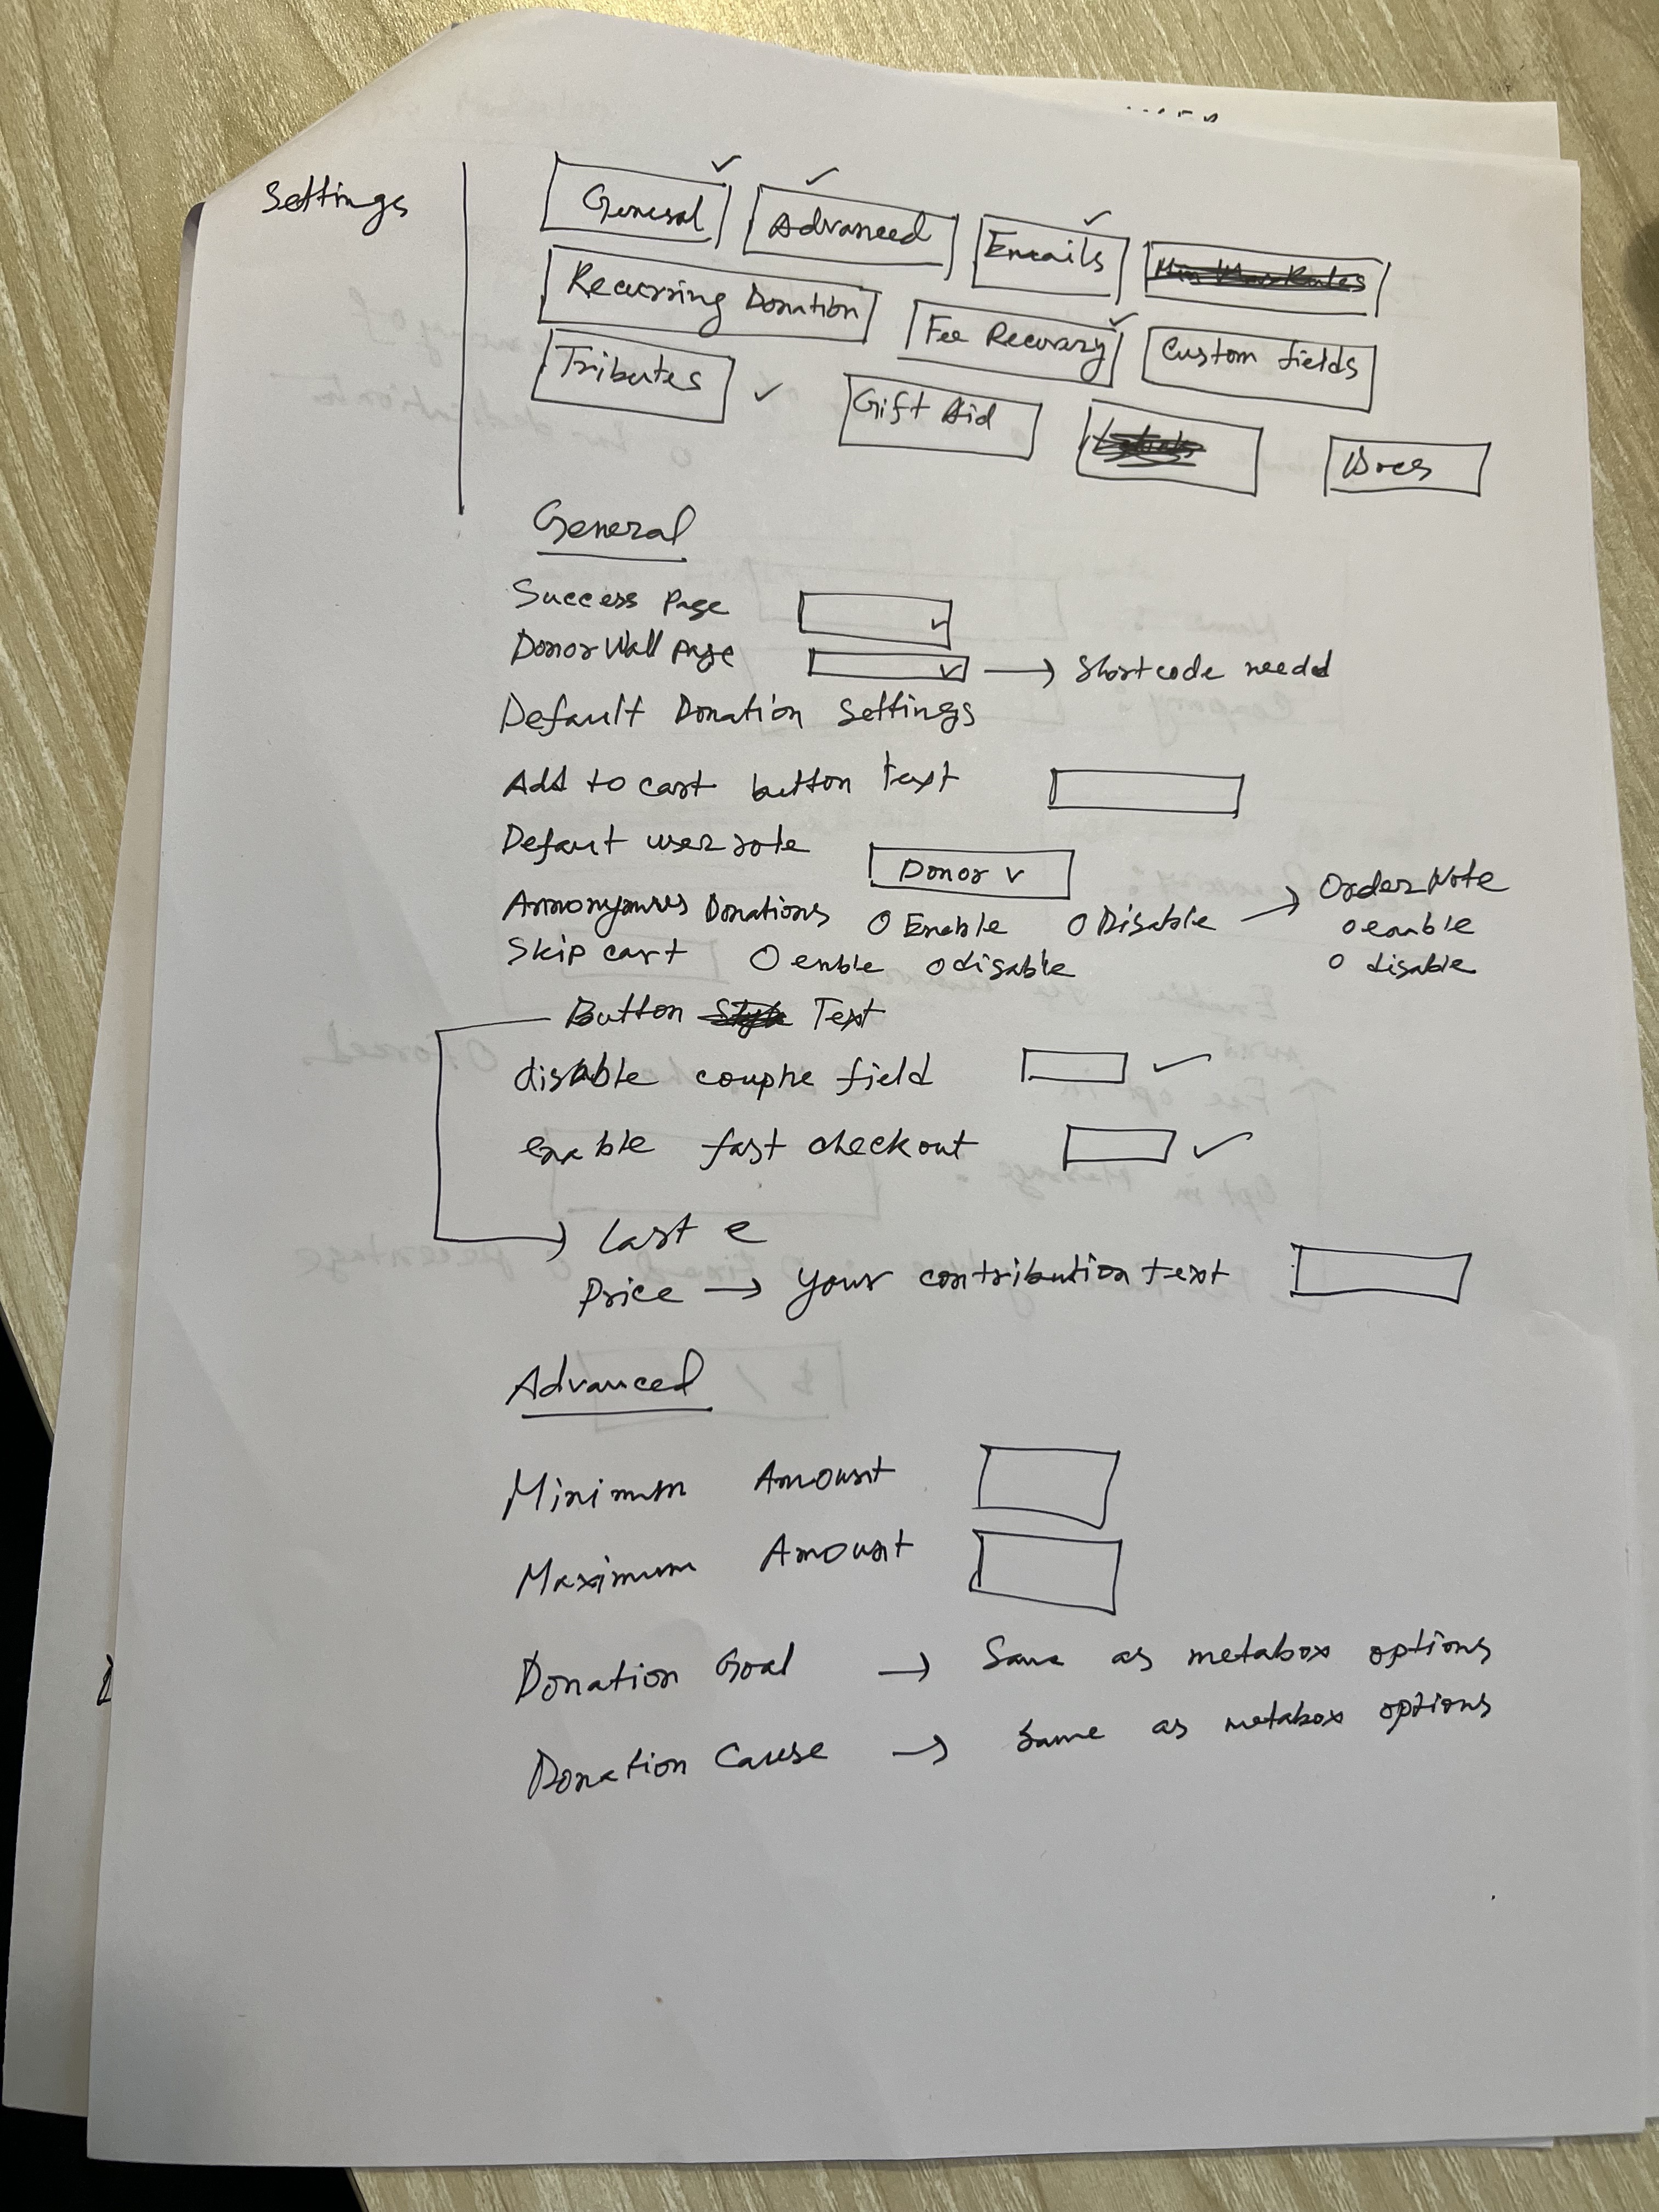 Settings
General Advanced Emails Min Max Rules
Recurring Donation Fee Recovary Custom fields
Tributes Gift Aid Docs
General
Success Page
Donor Wall page → Shortcode needd
Default Donation Settings
Add to cart button text
Default user role Donor
Annonymures Donations Enable Disable → Order Note
enable
Skip cart enble disable
disable
Button Text
disable couple field
enable fast checkout
Last e
Price → Your contribution text
Advanced
Minimum Amount
Maximum Amount
Donation Goal → Same as metabox options
Donation Cause → Same as metabox options